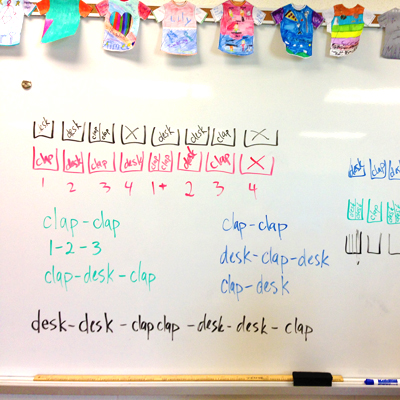 desk clap clap X desk desk clap X
clap desk clap desk clap clap desk clap X
1 2 3 4 1+ 2 3 4
clap-clap
1-2-3
clap-desk-clap
clap-clap
desk-clap-desk
clap-desk
desk-desk-clapclap-desk-desk-clap
desk clap